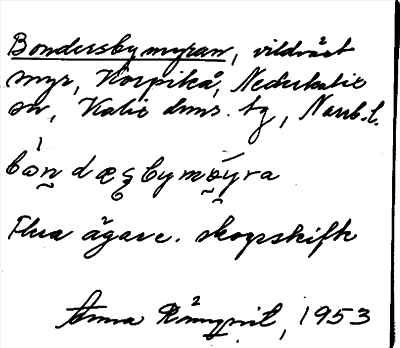 Bondersbymyran, vildväxt
myr, Korpikå, Nederkalix
sn, Kalix dms. tg, Norrb. l.
bòn dæs̨bymøýra
Flera ägare. skogsskifte
Anna Rönnqvist, 1953